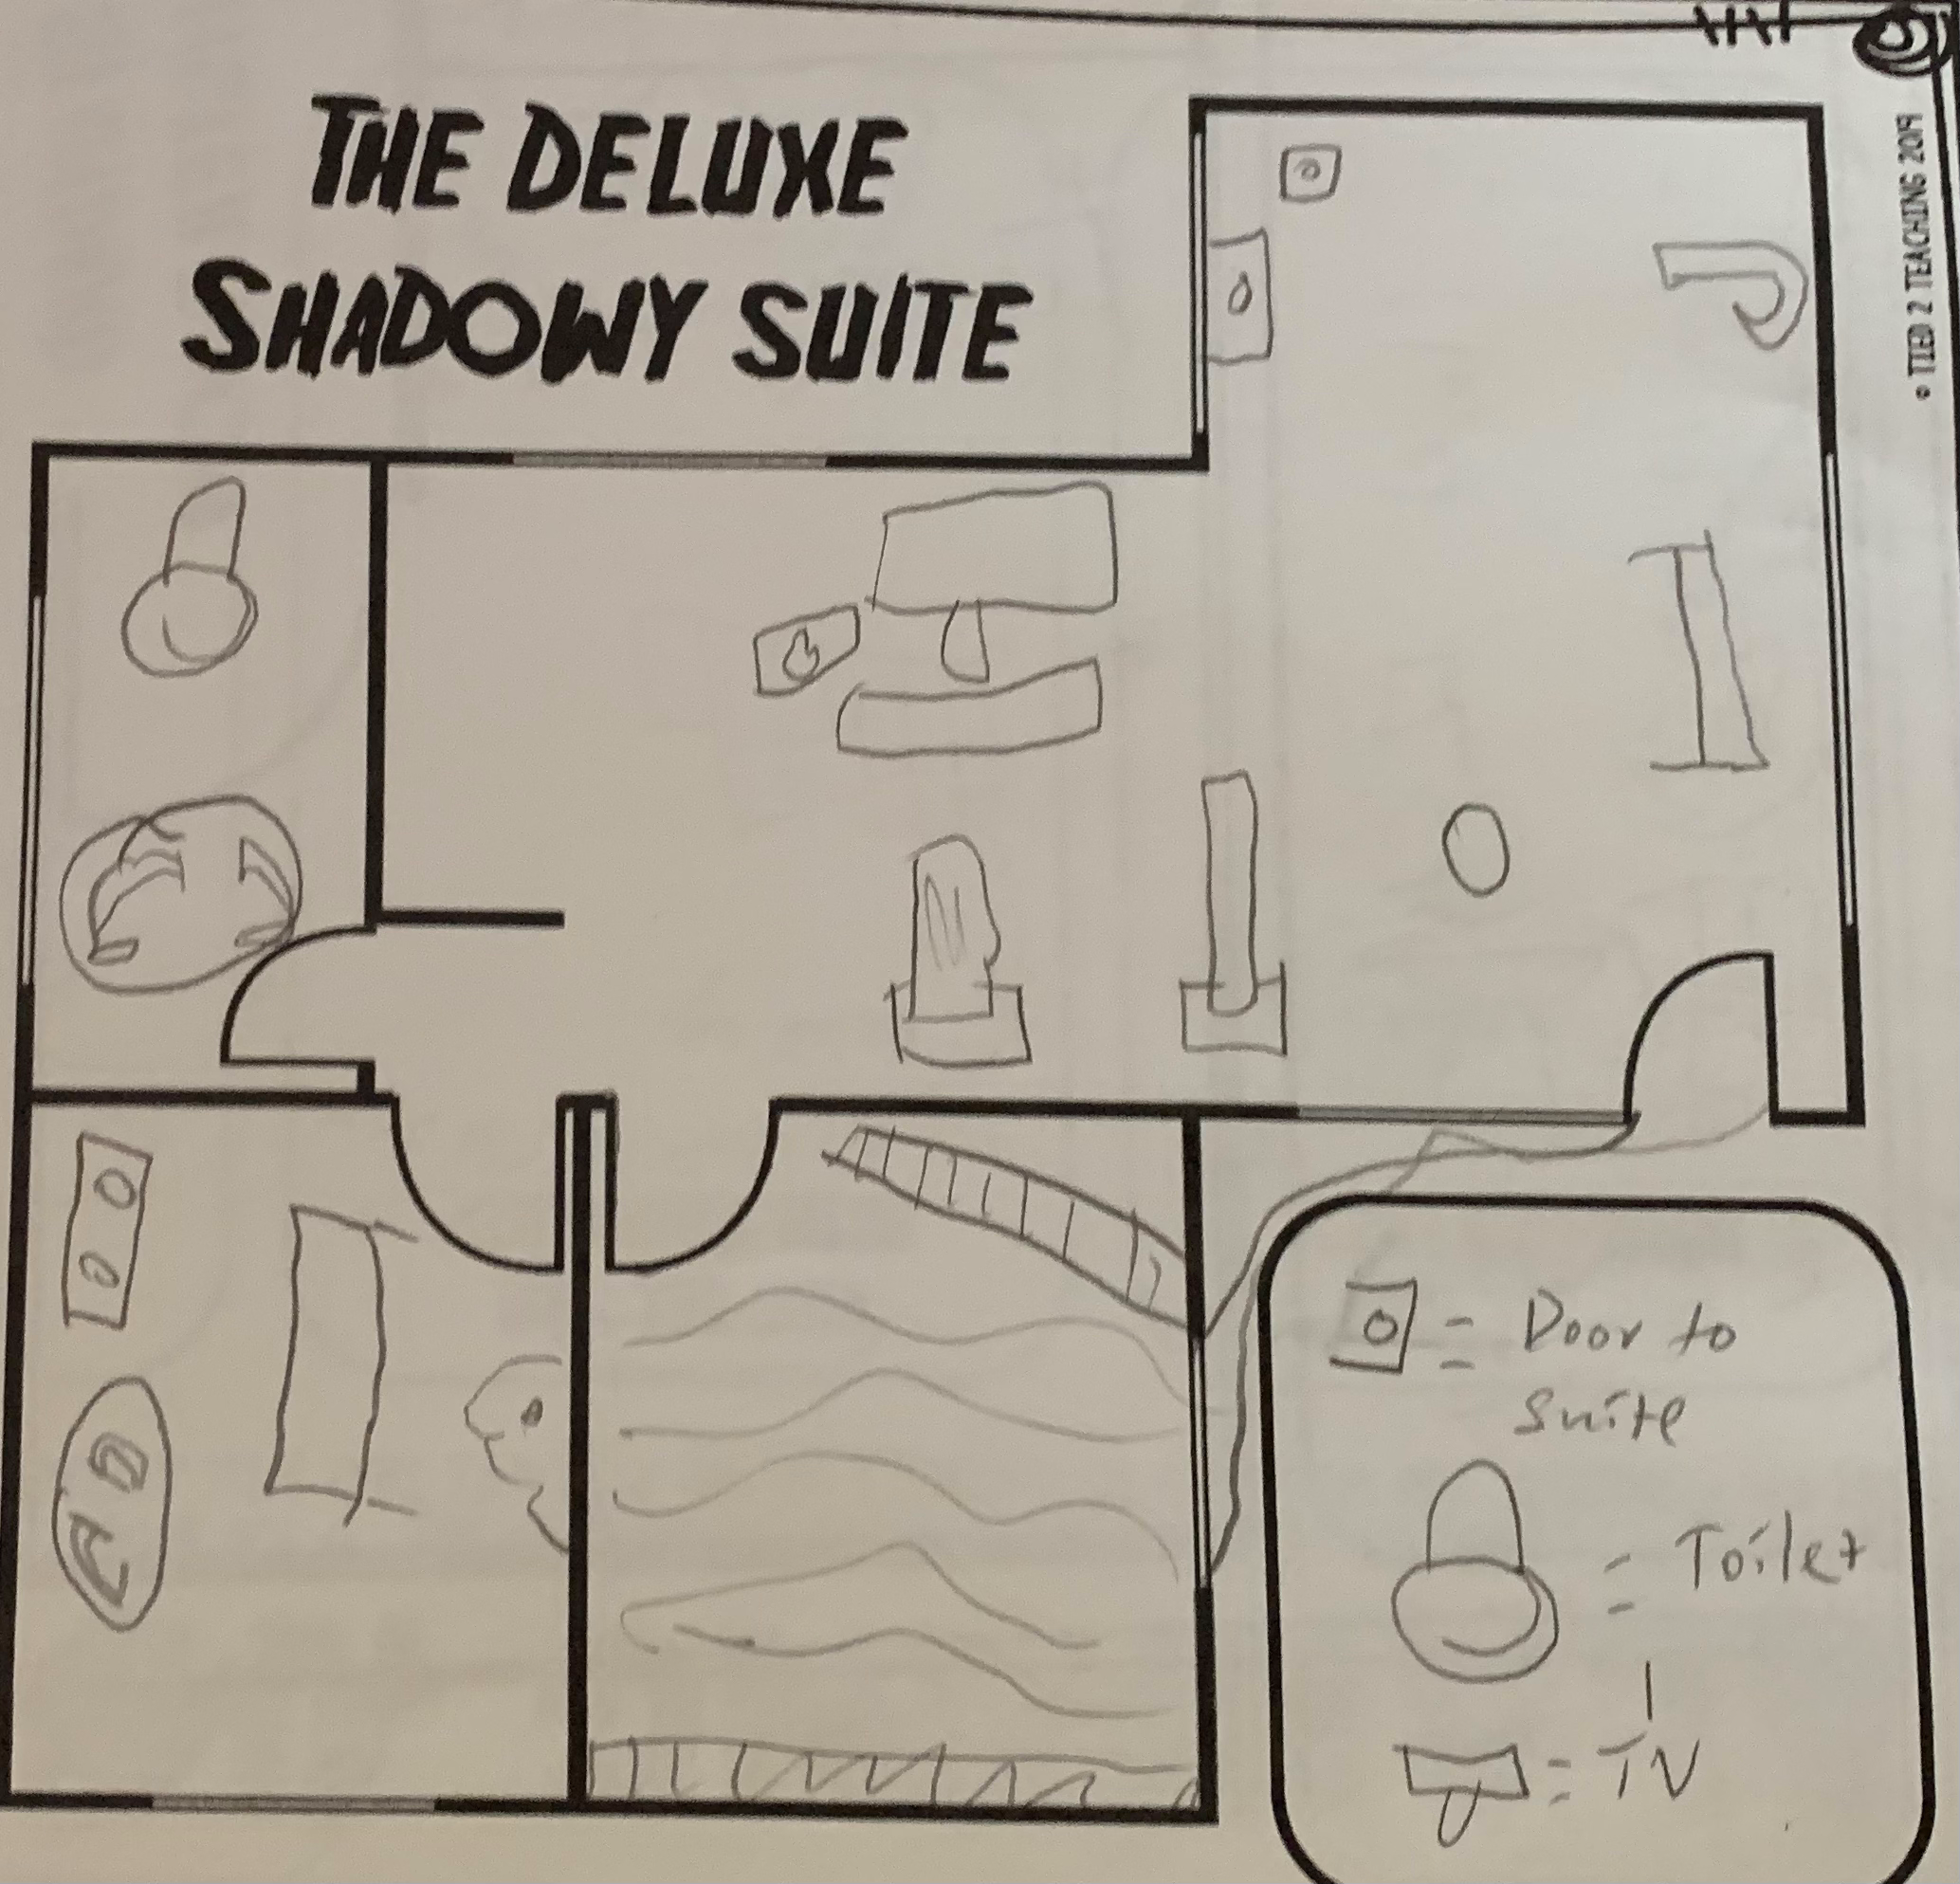 THE DELUXE
SHADOWY SUITE
© TIED 2 TEACHING 2019
= Door to
suite
= Toilet
= TV